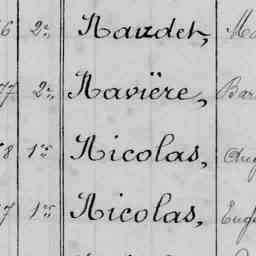 6 2e Naudet, Ma
77 2e Navière, Bar
8 1re Nicolas, Aug
7 1re Nicolas, Eugè